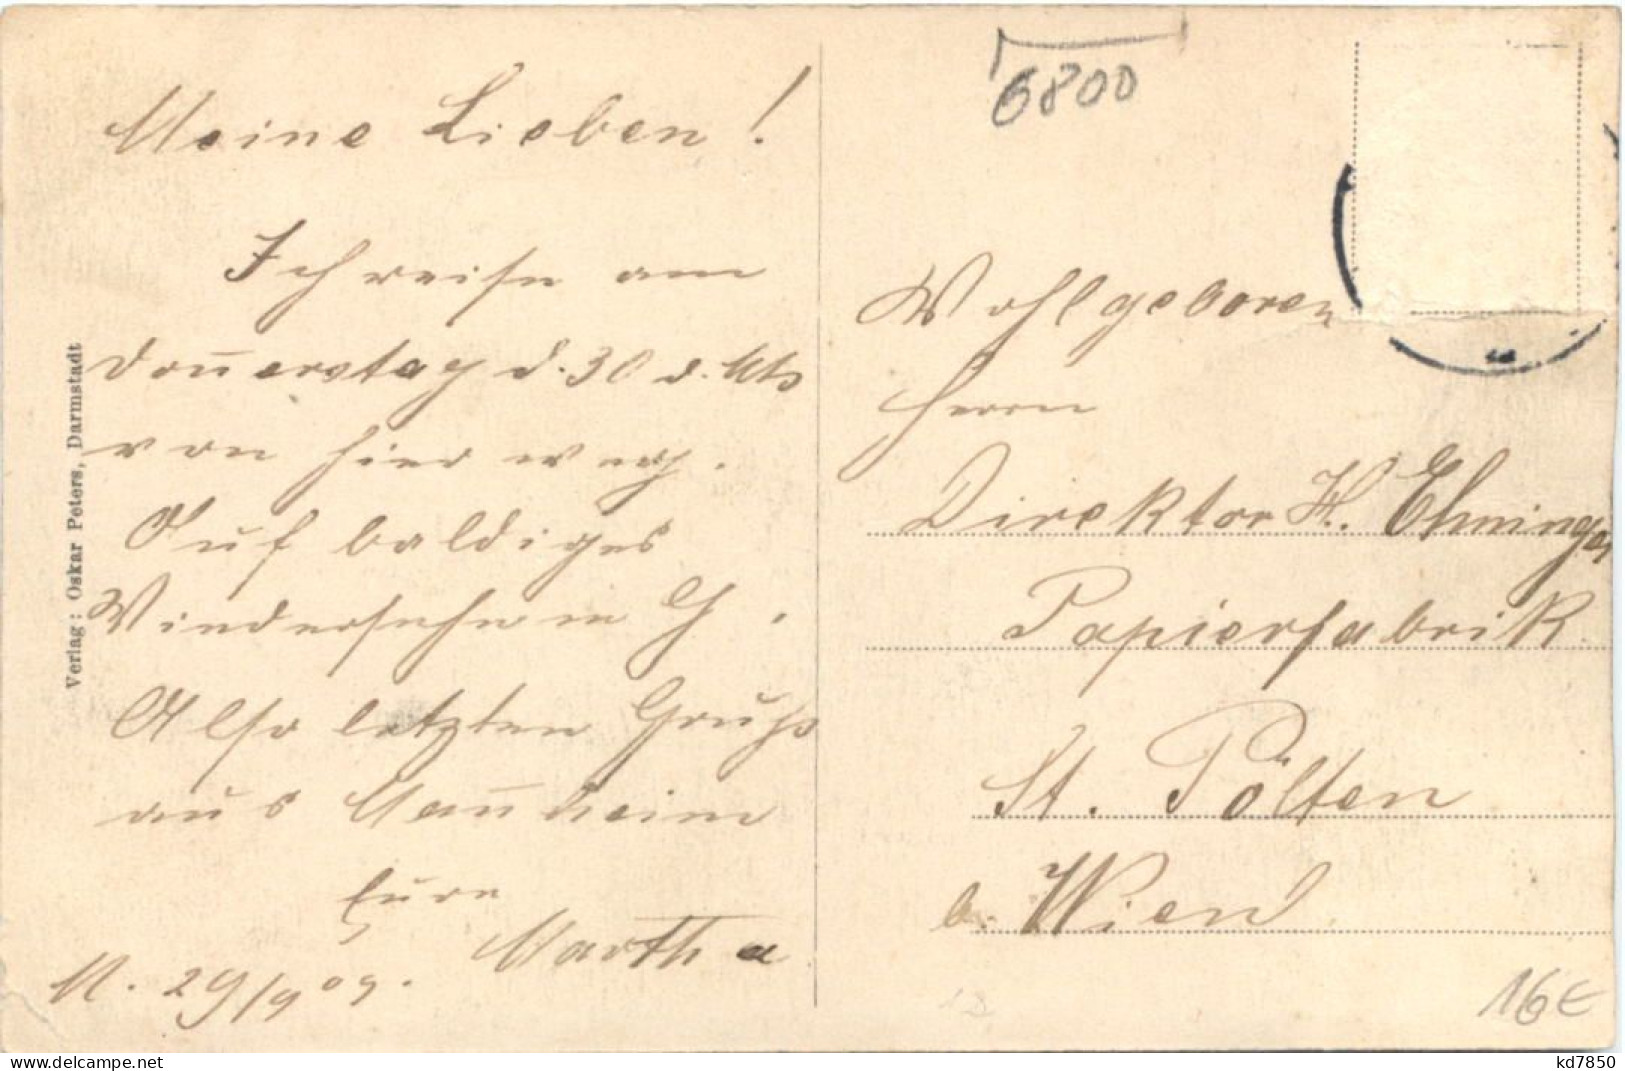 6800
Meine Lieben!
Ich reise am
Donnerstag d. 30 d. Mts
von hier weg.
Auf baldiges
Wiedersehn in G.
Also letzten Gruß
aus Mannheim
Eure
Martha
M. 29/9 09.
Verlag: Oskar Peters, Darmstadt
Wohlgeboren
Herrn
Direktor H. Ehninger
Papierfabrik
St. Pölten
b. Wien
16€
www.delcampe.net
kd7850